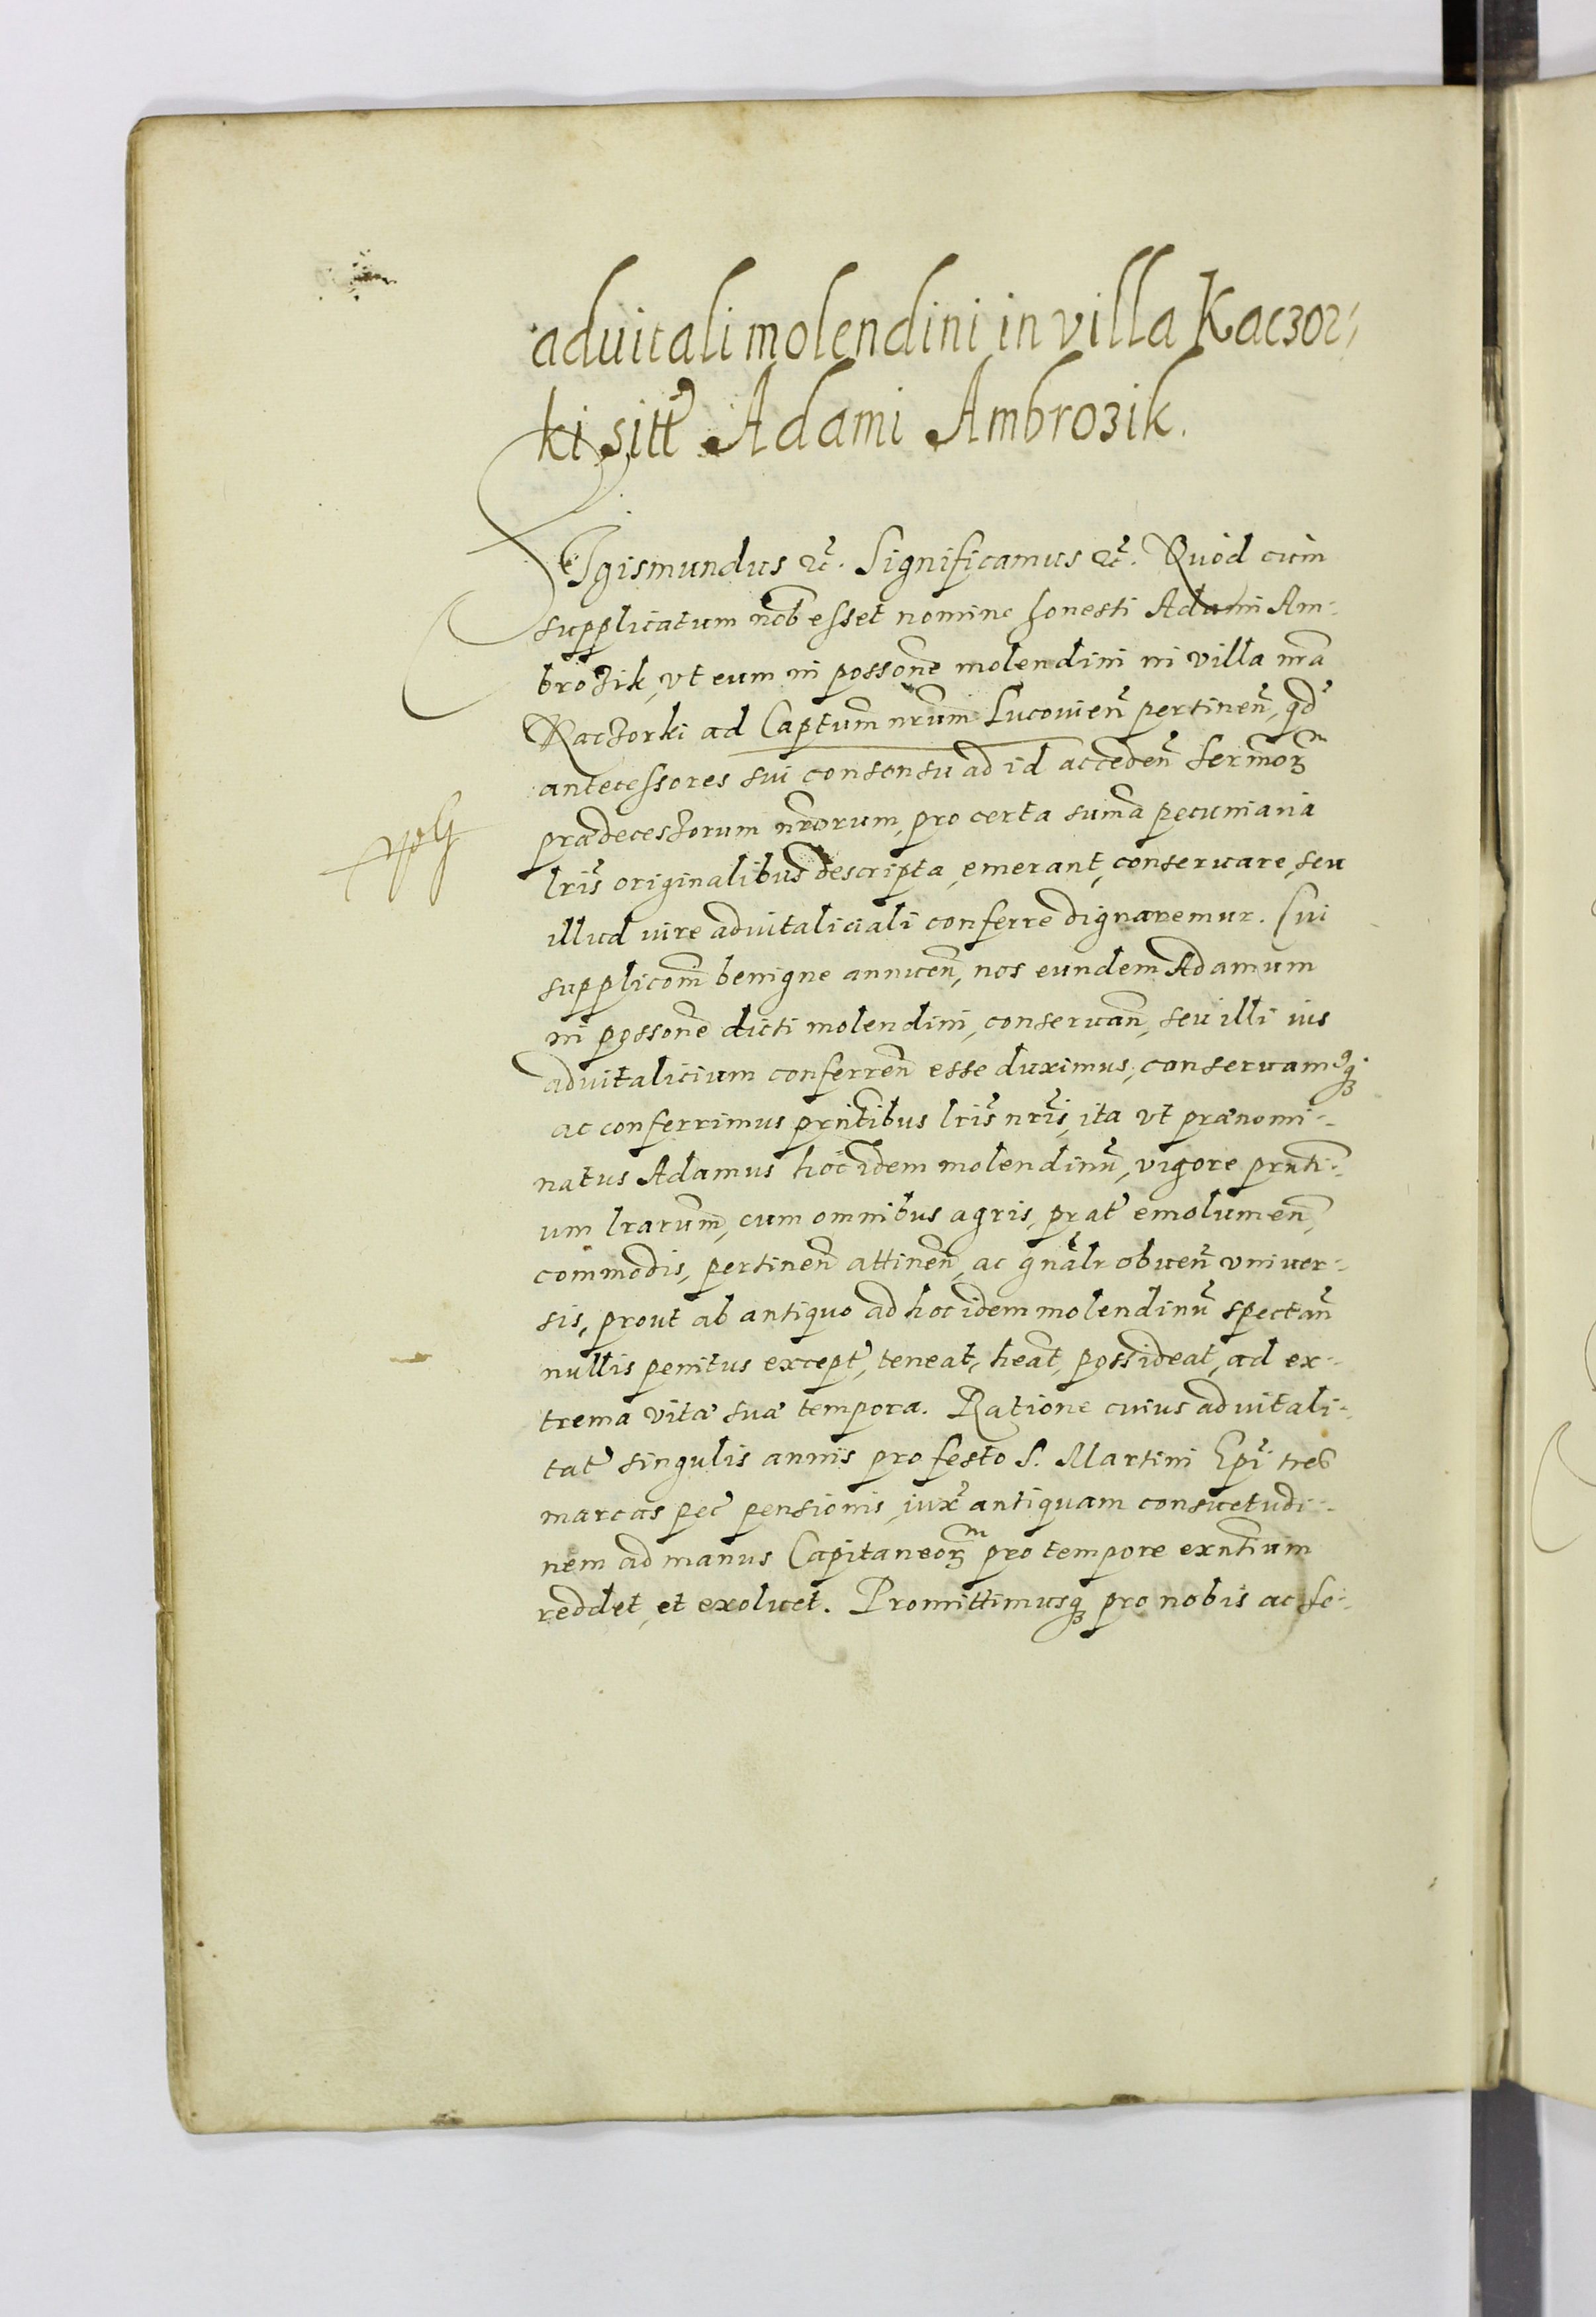 advitali molendini in villa Kaczor-
ki sitt Adami Ambrozik.
Sigismundus etc. Significamus etc. Quod cum
supplicatum nob esset nomine honesti Adami Am-
brozik, vt eum in possone molendini in villa nra
Kaczorki ad Captum nrum Lucovien pertinen, qd
antecessores sui consensu ad id acceden sermorum
prædecessorum nrorum, pro certa suma pecuniaria
lris originalibus descripta, emerant, conseruare, seu
illud iure aduitaliciali conferre dignaremur. Cui
supplicom benigne annuen, nos eundem Adamum
in possone dicti molendini, conseruan, seu illi ius
aduitalicium conferren esse duximus, conseruamq
ac conferrimus prntibus lris nris, ita vt prænomi-
natus Adamus hoc idem molendinu, vigore prnti-
um lrarum, cum omnibus agris, prat emolumen,
commodis, pertinen attinen, ac gnalr obuen vniuer-
sis, prout ab antiquo ad hoc idem molendinu spectan
nullis penitus except, teneat, heat, possideat, ad ex-
trema vitæ suæ tempora. Ratione cuius aduitali-
tat singulis annis pro festo S. Martini Epi tres
marcas pec pensionis, iux antiquam consuetudi-
nem ad manus Capitaneorum pro tempore exntium
reddet, et exoluet. Promittimusq pro nobis ac se-